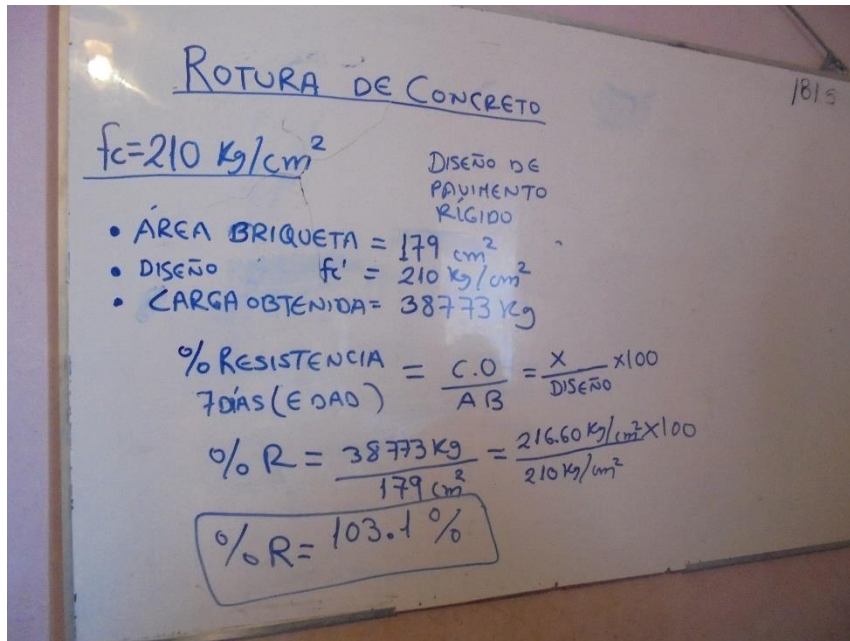 ROTURA DE CONCRETO
1815
fc=210 Kg/cm²
DISEÑO DE
PAVIMENTO
RÍGIDO
• ÁREA BRIQUETA = 179 cm²
• DISEÑO fc' = 210 Kg/cm²
• CARGA OBTENIDA = 38773 Kg
% RESISTENCIA = C.O / AB = X / DISEÑO x100
7 DÍAS (EDAD)
% R = 38773 Kg / 179 cm² = 216.60 Kg/cm² X100 / 210 Kg/cm²
% R = 103.1 %